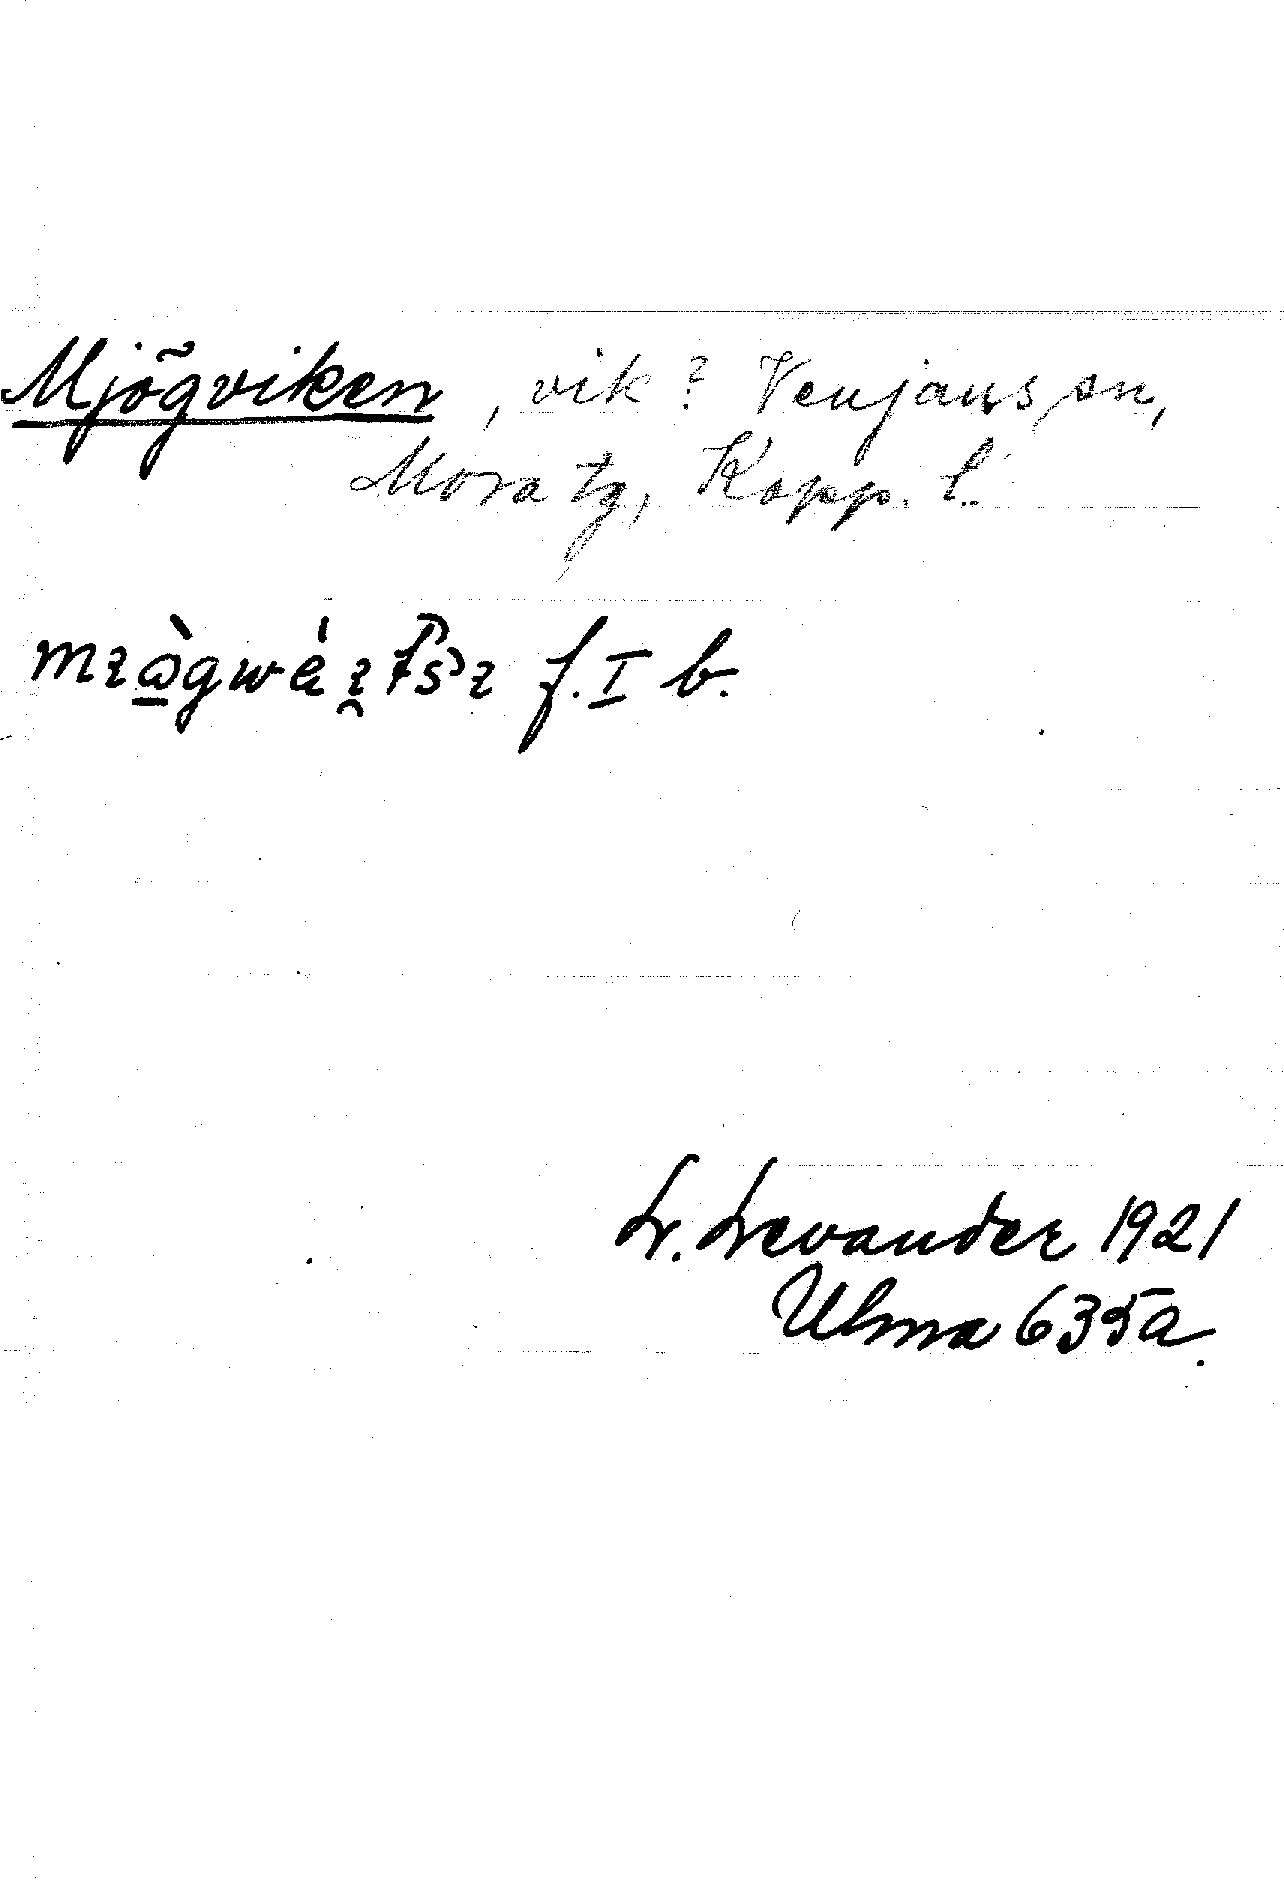 Mjögviken, vik? Venjans sn,
Mora tg, Kopp. l.
f. I b.
L. Levander 1921
Ulma 635a.